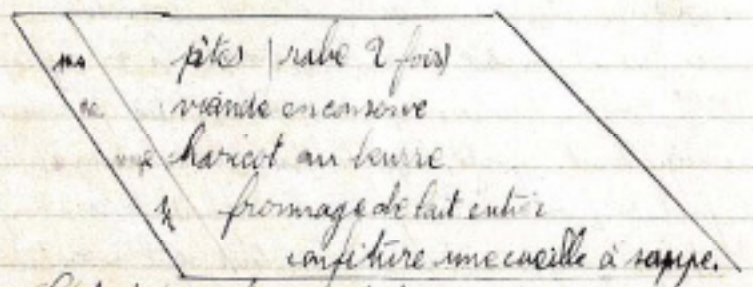 pâtes (rabe 2 fois)
viande en conserve
haricot au beurre
fromage de lait entier
confiture une cueille à soupe.